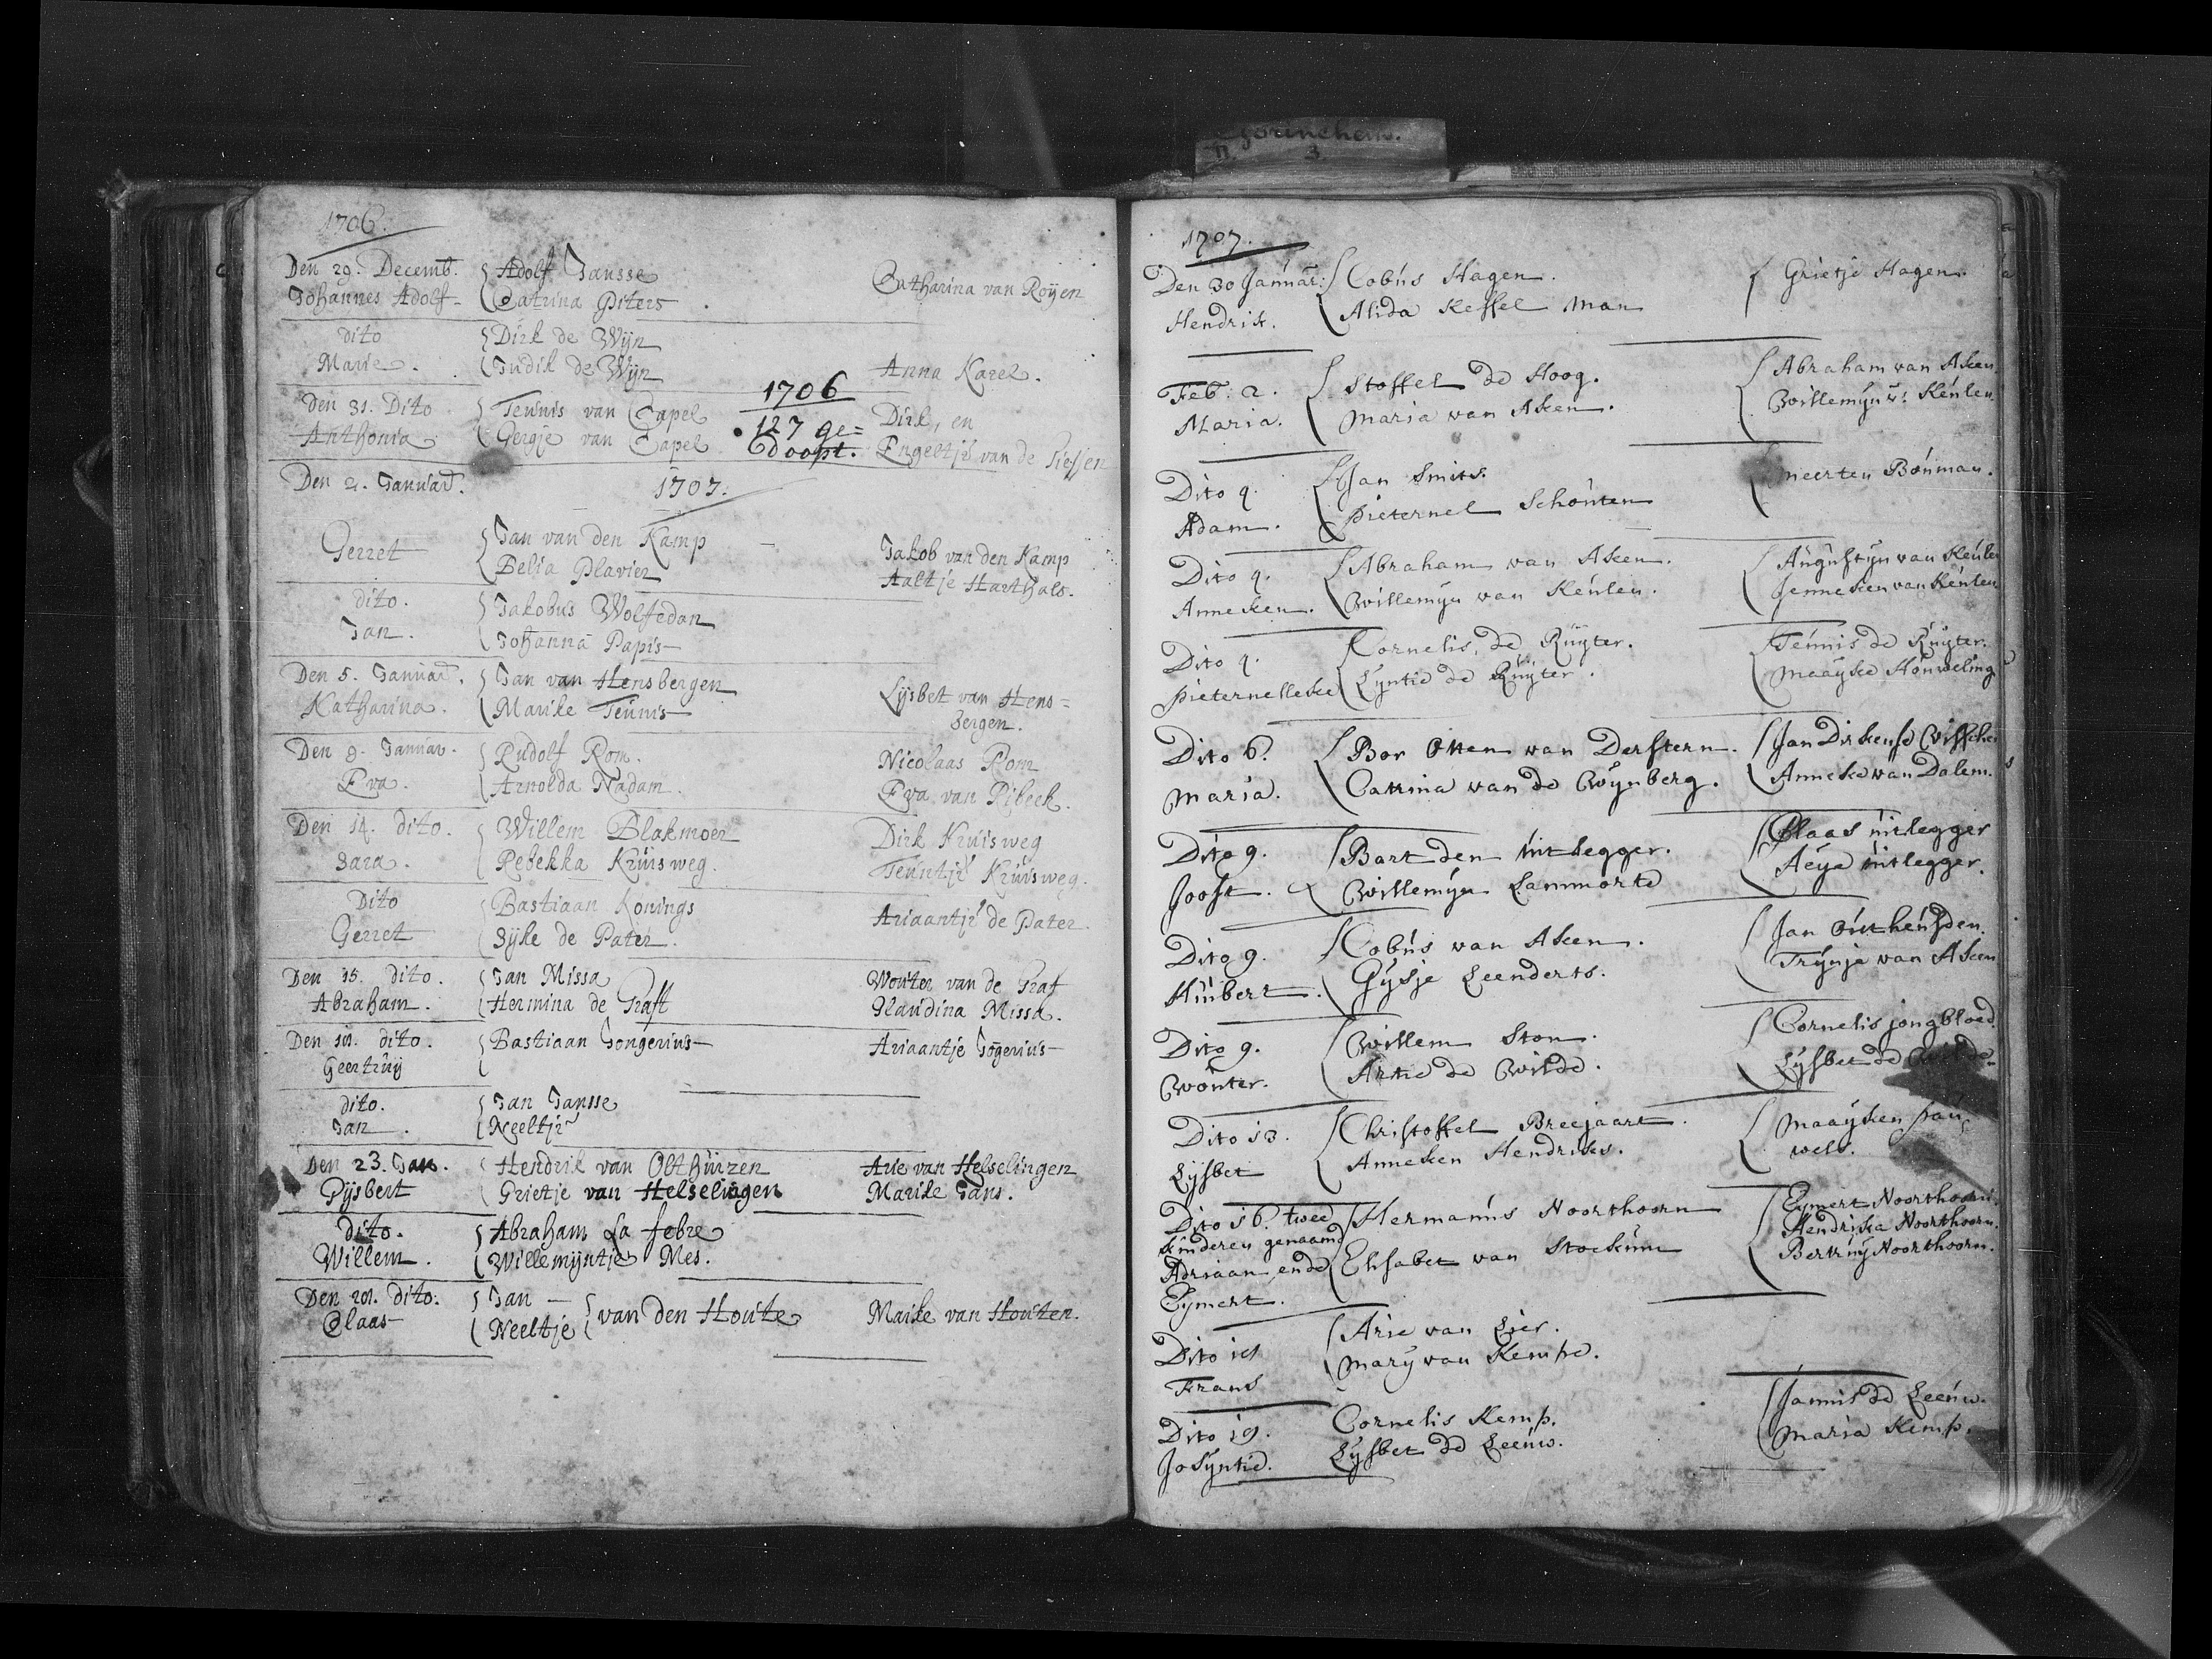 Gorinchem.
3
1706.
Den 29. Decemb. Adolf Jansse Catharina van Roijen
Johannes Adolf Catrina Piters
dito Dirk de Wijn
Marie. Judik de Wijn Anna Karel.
Den 31. Dito Teunis van Capel 1706 Dirk, en
Anthonia Gergje van Capel 127 ge= Engeltje van de Giessen
doopt.
Den 2. Januar. 1707.
Gerret Jan van den Kamp Jakob van den Kamp
Belia Plavier Aaltje Harthals.
dito. Jakobus Wolfedan
Jan. Johanna Papis
Den 5. Januar. Jan van Hensbergen Lijsbet van Hens=
Katharina. Marike Teunis bergen.
Den 9. Januar. Rudolf Rom. Nicolaas Rom
Eva. Arnolda Nadam. Eva van Ribeek.
Den 14. dito. Willem Blakmoer Dirk Kruisweg
Sara. Rebekka Kruisweg. Teuntje Kruisweg.
Dito Bastiaan Konings Ariaantje de Pater.
Gerret Sijke de Pater.
Den 15. dito. Jan Missa Wouter van de Graf
Abraham. Hermina de Graft Claudina Missa.
Den dito. Bastiaan Jongerius Ariaantje Jõgerius
Geertruij
dito. Jan Jansse
Jan. Neeltje
Den 23. Jan. Hendrik van Olthuizen Arie van Helselingen
Gijsbert Grietje van Helselingen Marike Jans.
dito. Abraham La febre
Willem. Willemijntje Mes.
Den dito. Jan
Claas Neeltje van den Houte Maike van Houten.
1707.
Den 30 Januar: Cobus Hagen. Grietje Hagen.
Hendrik. Alida Kessel man
Feb: 2. Stoffel de Hoog. Abraham van Aken
Maria. Maria van Aken. Willemijn v. Keulen.
Dito 9. Jan Smits. meerten Bouman.
Adam. Pieternel Schouten
Dito 9. Abraham van Aken. Augustijn van Keulen
Anneken. Willemijn van Keulen. Jenneken van Keulen
Dito 9. Cornelis de Ruijter. Teunis de Ruijter.
Pieternelleke Lijntie de Ruijter. Maaijke Houweling
Dito 6. Bor Otten van Derstern. Jan Dirkense Vissche
Maria. Catrina van de Wijnberg. Anneke van Dalem.
Dito 9. Bart den uitlegger. Claas uitlegger
Joost. Willemijn Lammorte Aeija uitlegger.
Dito 9. Cobus van Aken. Jan Outheusden.
Huibert. Gijsje Leenderts. Trijnje van Aken
Dito 9. Willem Stom. Cornelis jongbloed
Wouter. Artie de Wilde. Lijsbet de Wilde.
Dito 13. Christoffel Breejaart. Maaijken Pau
Lijsbet Anneken Hendriks. wels.
Dito 16. twee Hermanus Noorthoorn Eijmert Noorthoorn.
kinderen genaamd Hendrika Noorthoorn.
Adriaan ende Elisabet van Stockum Bertruij Noorthoorn.
Eijmert.
Dito Arie van Lier.
Frans Marij van Kempe.
Dito 19. Cornelis Kemp. Jannis de Leeuw.
Josijntie. Lijsbet de Leeuw. Maria Kemp.